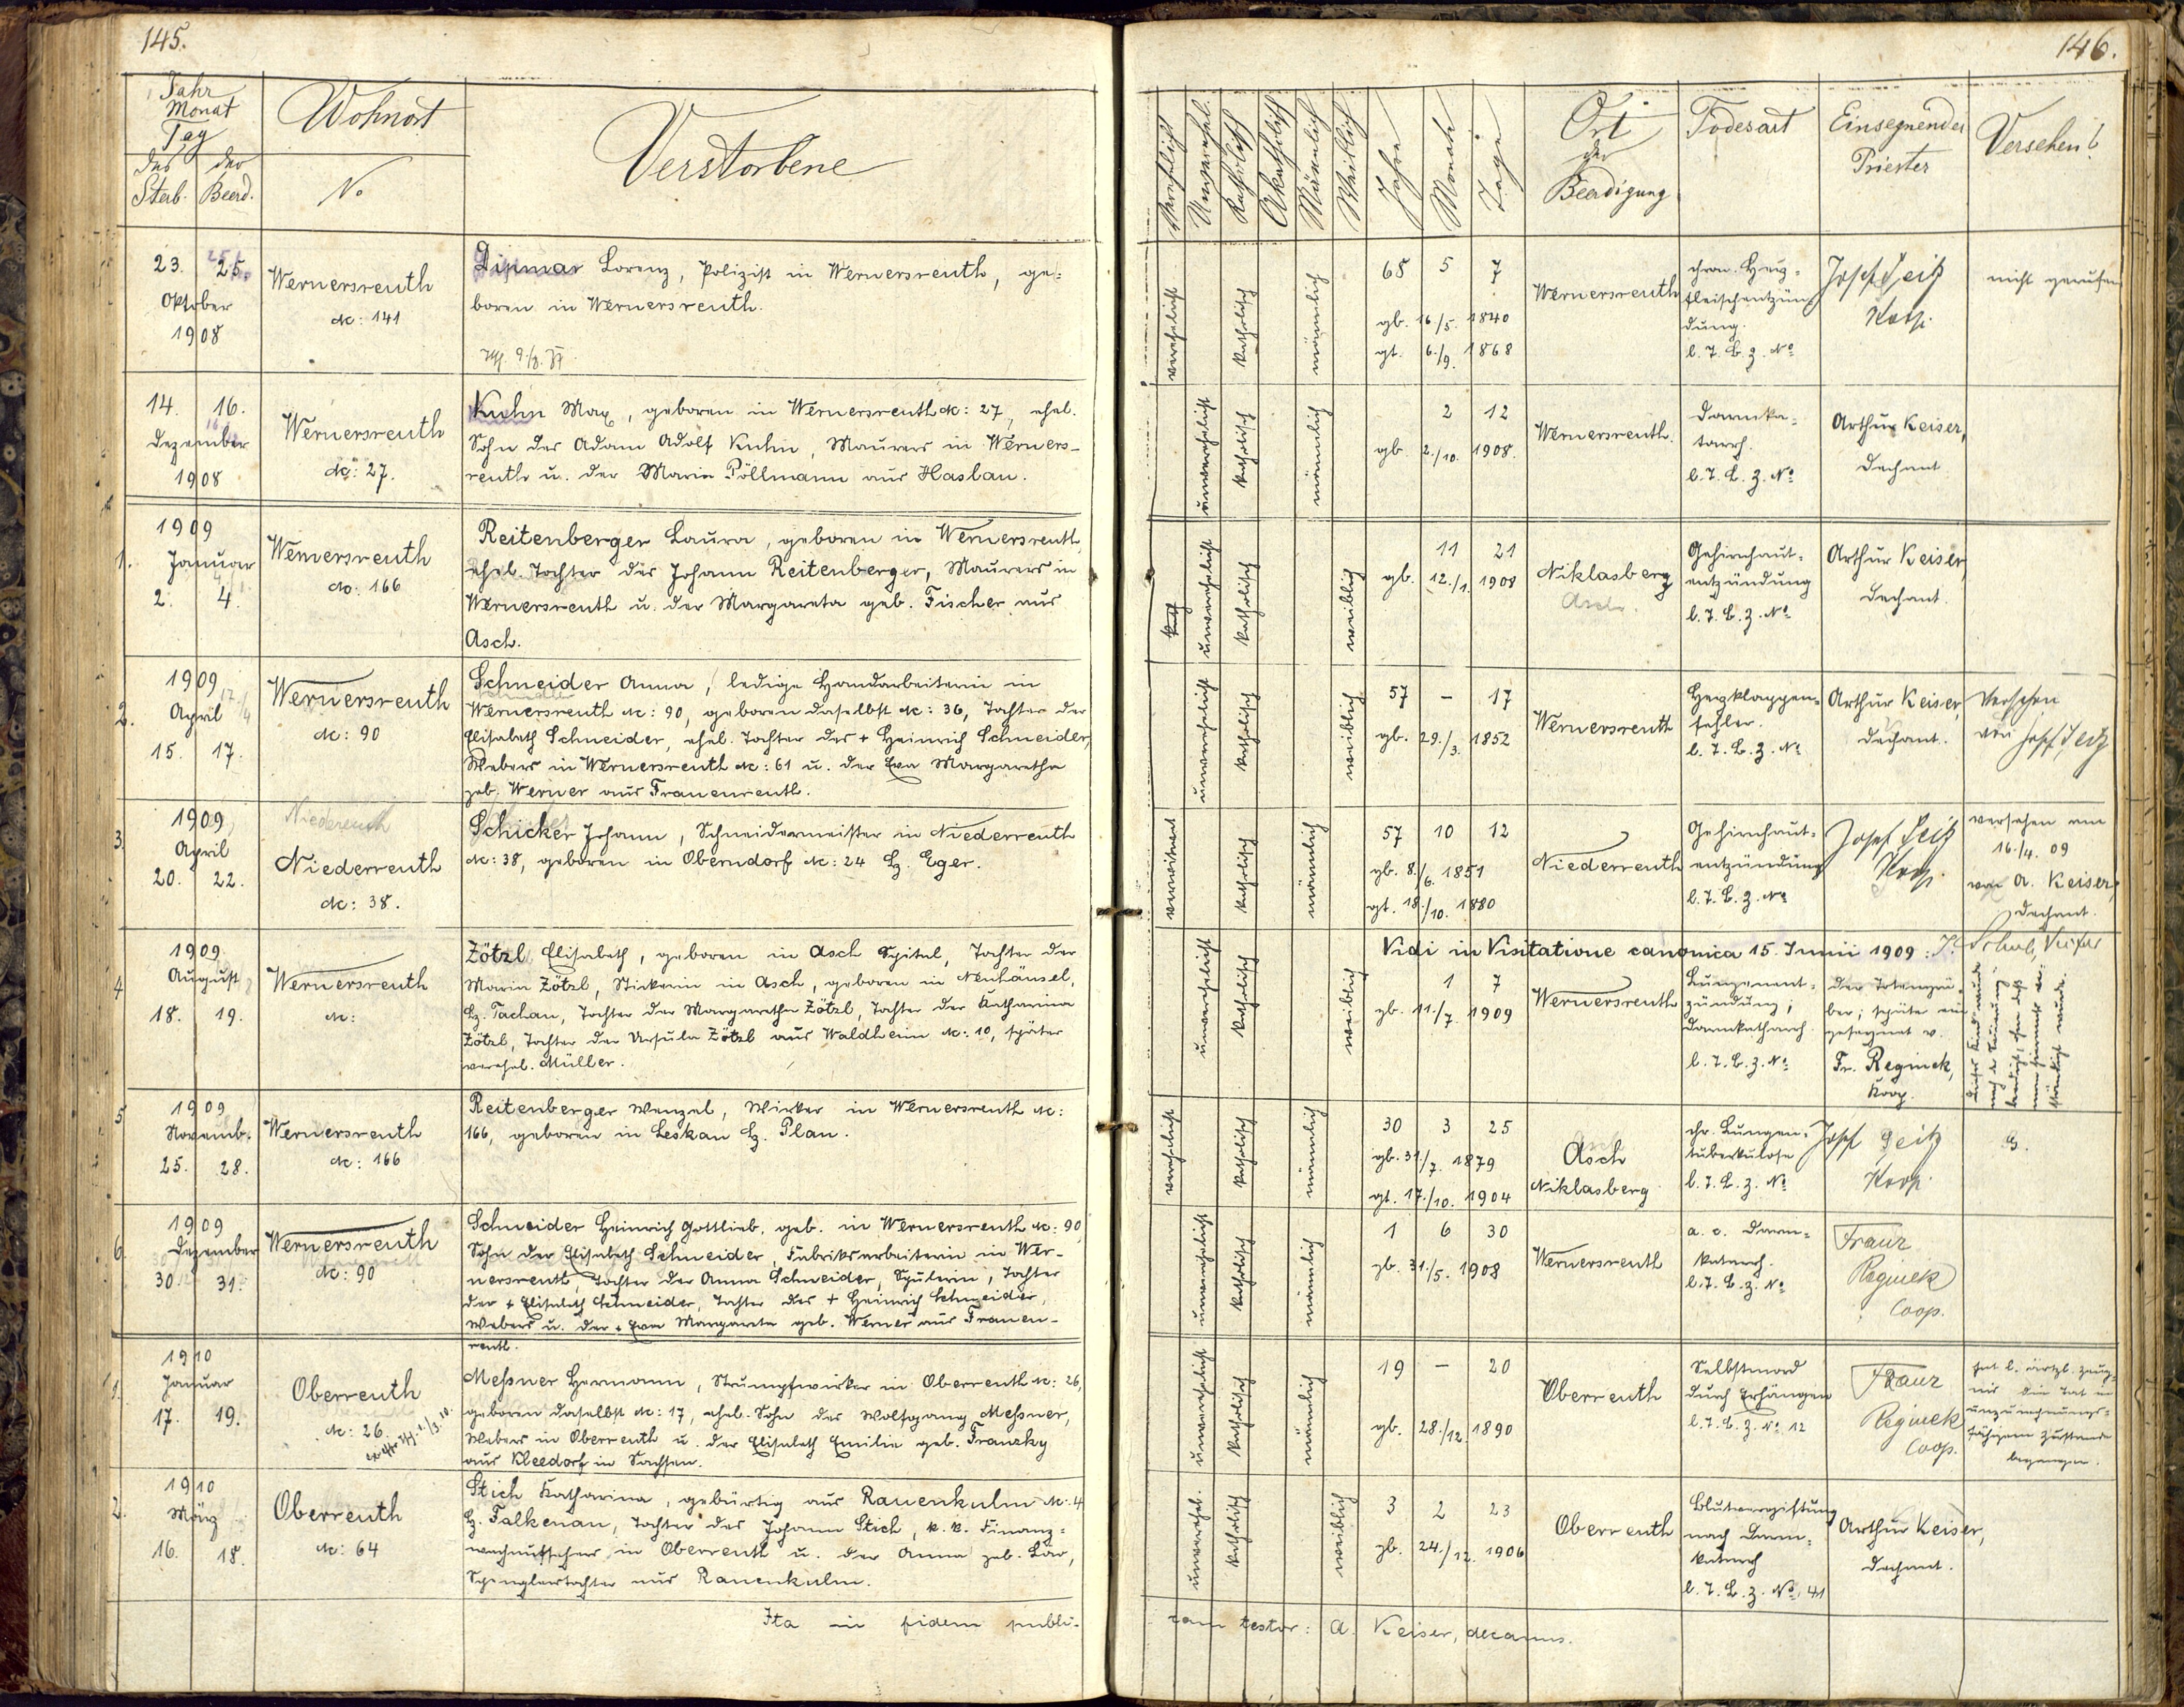 145.
Jahr
Monat
Tag
des Sterb.
der Beerd.
Wohnort
No
Verstorbene
23. 25.
Oktober
1908
Wernersreuth
No: 141
Lorenz, Polizist in Wernersreuth, ge-
boren in Wernersreuth.
14. 16.
Dezember
1908
Wernersreuth
No: 27.
Kuhn Max, geboren in Wernersreuth No: 27, ehel.
Sohn des Adam Adolf Kuhn, Maurers in Werners-
reuth u. der Maria Pöllmann aus Haslau.
1.
1909
Januar
2. 4.
Wernersreuth
No: 166
Reitenberger Laura, geboren in Wernersreuth,
ehel. Tochter des Johann Reitenberger, Maurers in
Wernersreuth u. der Margareta geb. Fischer aus
Asch.
2.
1909
April
15. 17.
Wernersreuth
No: 90
Schneider Anna, ledige Handarbeiterin in
Wernersreuth No: 90, geboren daselbst No: 36, Tochter der
Elisabeth Schneider, ehel. Tochter des + Heinrich Schneider,
Webers in Wernersreuth No: 61 u. der Eva Margaretha
geb. Werner aus Frauenreuth.
3.
1909
April
20. 22.
Niederreuth
Niederreuth
No: 38.
Schicker Johann, Schneidermeister in Niederreuth
No: 38, geboren in Oberndorf No: 24 Bz. Eger.
4
1909
August
18. 19.
Wernersreuth
No:
Zötzl Elisabeth, geboren in Asch Spital, Tochter der
Maria Zötzl, Stickerin in Asch, geboren in Neuhäusel,
Bz. Tachau, Tochter der Margaretha Zötzl, Tochter der Katharina
Zötzl, Tochter der Ursula Zötzl aus Waldheim No: 10, später
verehel. Müller.
5
1909
Novemb.
25. 28.
Wernersreuth
No: 166
Reitenberger Wenzel, Wirker in Wernersreuth No:
166, geboren in Leskau Bz. Plan.
6.
1909
Dezember
30. 31.
Wernersreuth
No: 90
Schneider Heinrich Gottlieb, geb. in Wernersreuth No: 90,
Sohn der Elisabeth Schneider, Fabriksarbeiterin in Wer-
nersreuth, Tochter der Anna Schneider, Spulerin, Tochter
der + Elisabeth Schneider, Tochter des + Heinrich Schneider,
Webers u. der + Eva Margareta geb. Werner aus Frauen-
reuth.
1.
1910
Januar
17. 19.
Oberreuth
No: 26
Meßner Hermann, Strumpfwirker in Oberreuth No: 26,
geboren daselbst No: 17, ehel. Sohn des Wolfgang Meßner,
Webers in Oberreuth u. der Elisabeth Emilie geb. Franzky
aus Kleedorf in Sachsen.
2.
1910
März
16. 18.
Oberreuth
No: 64
Stich Katharina, gebürtig aus Rauenkulm No: 4
Bz. Falkenau, Tochter des Johann Stich, k. k. Finanz-
wachaufsehers in Oberreuth u. der Anna geb. Lär,
Spenglerstochter aus Rauenkulm.
Ita in fidem publi-
146.
Verehelicht
Unverehel.
Katholisch
Akatholisch
Männlich
Weiblich
Jahre
Monate
Tage
Ort
der
Beerdigung
Todesart
Einsegnender
Priester
Versehen?
verehelicht katholisch männlich
68 5 7
gb. 16/5. 1840
gt. 6./9. 1868
Wernersreuth
chron. Herz-
fleischentzün-
dung.
l. T. B. z. No
Josef Seitz
Koop.
nicht gerufen
unverehelicht katholisch männlich
2 12
gb. 2./10. 1908.
Wernersreuth.
Darmka-
tarrh.
l. T. B. z. No
Arthur Keiser,
Dechant
unverehelicht katholisch weiblich
11 21
gb. 12./1. 1908
Niklasberg
Asch.
Gehirnhaut-
entzündung
l. T. B. z. No
Arthur Keiser,
Dechant.
unverehelicht katholisch weiblich
57 - 17
gb. 29./3. 1852
Wernersreuth
Herzklappen-
fehler.
l. T. B. z. No
Arthur Keiser,
Dechant.
Versehen
von Josef Seitz
verwitwet katholisch männlich
57 10 12
gb. 8./6. 1851
gt. 18./10. 1880
Niederreuth
Gehirnhaut-
entzündung
l. T. B. z. No
Josef Seitz
Koop.
versehen am
16./4. 09
von A. Keiser,
Dechant.
Vidi in Visitatione canonica 15. Junii 1909:
unverehelicht katholisch weiblich
1 7
gb. 11./7. 1909
Wernersreuth
Lungenent-
zündung;
Darmkatharrh.
l. T. B. z. No
der Totengrä-
ber; später ein-
gesegnet v.
Fr. Reginek,
Koop.
verehelicht katholisch männlich
30 3 25
gb. 31./7. 1879
gt. 17./10. 1904
Asch
Niklasberg
chr. Lungen-
tuberkulose
l. T. B. z. No
Josef Seitz
Koop.
unverehelicht katholisch männlich
1 6 30
gb. 31./5. 1908
Wernersreuth
a. c. Darm-
katarrh.
l. T. B. z. No
Franz
Reginek
Coop.
unverehelicht katholisch männlich
19 - 20
gb. 28./12. 1890
Oberreuth
Selbstmord
durch Erhängen
l. T. B. z. No 12
Franz
Reginek
Coop.
hat l. ärztl. Zeug-
nis die Tat in
unzurechnungs-
fähigem Zustande
begangen.
unverehel. katholisch weiblich
3 2 23
gb. 24./12. 1906
Oberreuth
Blutvergiftung
nach Darm-
katarrh
l. T. B. z. No. 41
Arthur Keiser,
Dechant.
cam testor: A. Keiser, decanus.